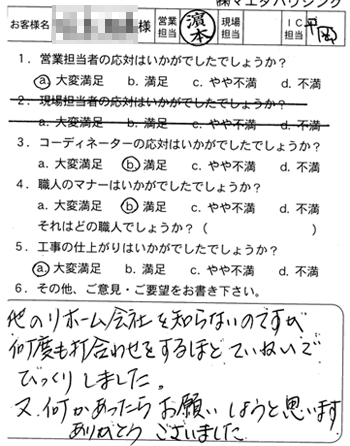 ㈱マエダハウジング
お客様名 様 営業担当 濱本 現場担当 IC担当
1．営業担当者の応対はいかがでしたでしょうか？
a. 大変満足 b. 満足 c. やや不満 d. 不満
2．現場担当者の応対はいかがでしたでしょうか？
a. 大変満足 b. 満足 c. やや不満 d. 不満
3．コーディネーターの応対はいかがでしたでしょうか？
a. 大変満足 b. 満足 c. やや不満 d. 不満
4．職人のマナーはいかがでしたでしょうか？
a. 大変満足 b. 満足 c. やや不満 d. 不満
それはどの職人でしょうか？（ ）
5．工事の仕上がりはいかがでしたでしょうか？
a. 大変満足 b. 満足 c. やや不満 d. 不満
6．その他、ご意見・ご要望をお書き下さい。
他のリホーム会社を知らないのですが
何度も打合わせをするほど ていねいで
びっくりしました。
又、何かあったら お願いしようと思います
ありがとう ございました